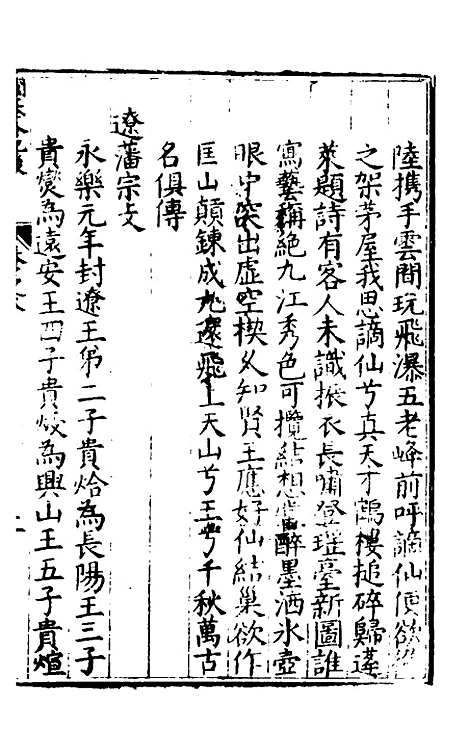 陸携手雲間玩飛瀑五老峰前呼謫仙便欲
之架茅屋我思謫仙兮真天才鶴樓搥碎歸蓬
萊題詩有客人未識振衣長嘯登瑤臺新圖誰
寫藝稱絕九江秀色可攬結想當醉墨洒氷壺
眼中突出虚空楔乆知賢王應好仙結巢欲作
匡山顛鍊成九還飛上天山兮王兮千秋萬古
名俱傳
遼藩宗攴
永樂元年封遼王第二子貴烚為長陽王三子
貴燮為遠安王四子貴燰為興山王五子貴煊